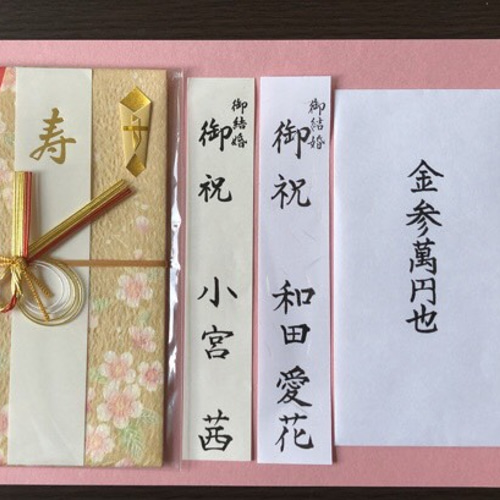 寿
御結婚
御祝
小宮 茜
御結婚
御祝
和田 愛花
金参萬円也